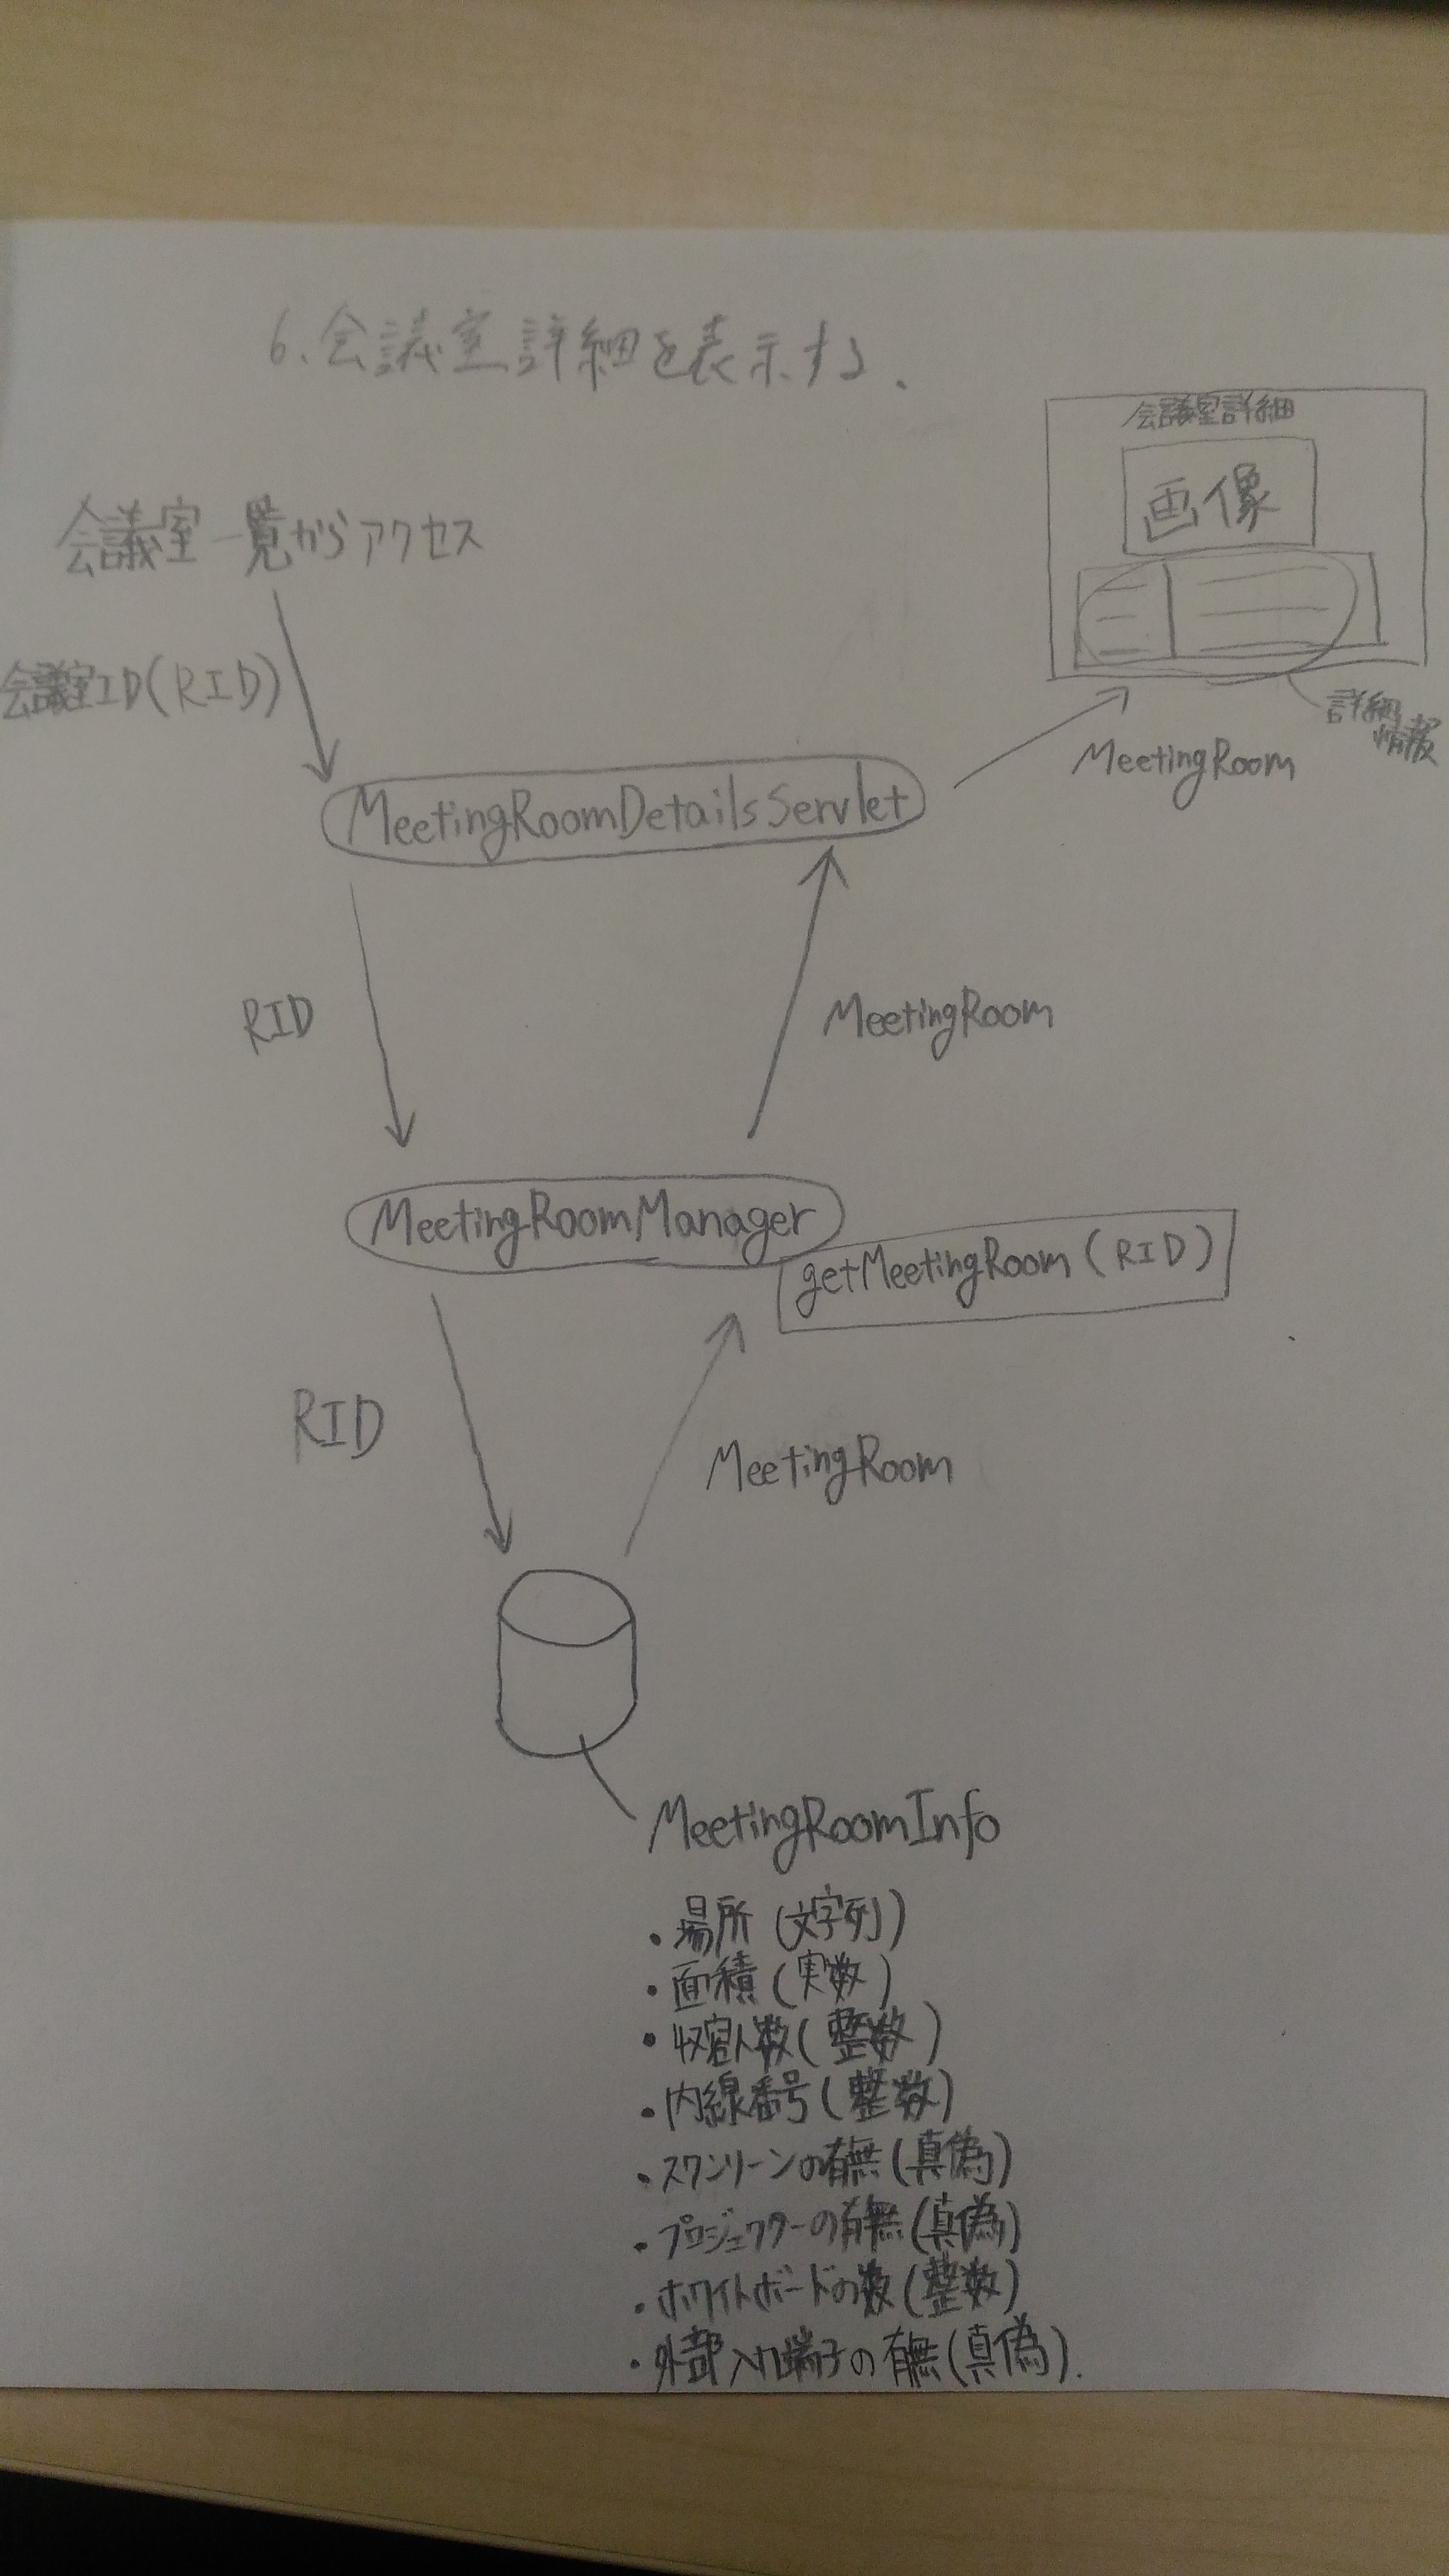 6. 会議室詳細を表示する.
会議室詳細
画像
会議室一覧からアクセス
会議室ID(RID)
詳細
情報
MeetingRoom
MeetingRoomDetailsServlet
RID
MeetingRoom
MeetingRoomManager
getMeetingRoom(RID)
RID
MeetingRoom
MeetingRoomInfo
・場所(文字列)
・面積(実数)
・収容人数(整数)
・内線番号(整数)
・スクリーンの有無(真偽)
・プロジェクターの有無(真偽)
・ホワイトボードの数(整数)
・外部入力端子の有無(真偽).